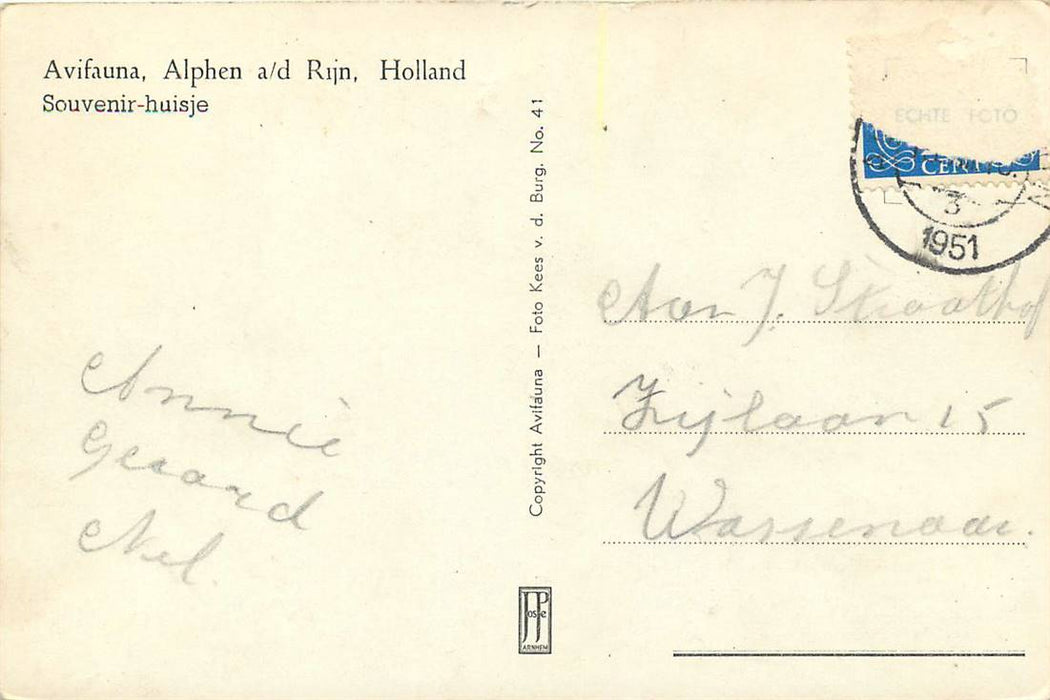 Avifauna, Alphen a/d Rijn, Holland
Souvenir-huisje
Annie
Gerard
Nel.
Copyright Avifauna — Foto Kees v. d. Burg. No. 41
JosPé
ARNHEM
ECHTE FOTO
CENT
3
1951
Aan J. Straathof
Zijlaan 15
Wassenaar.